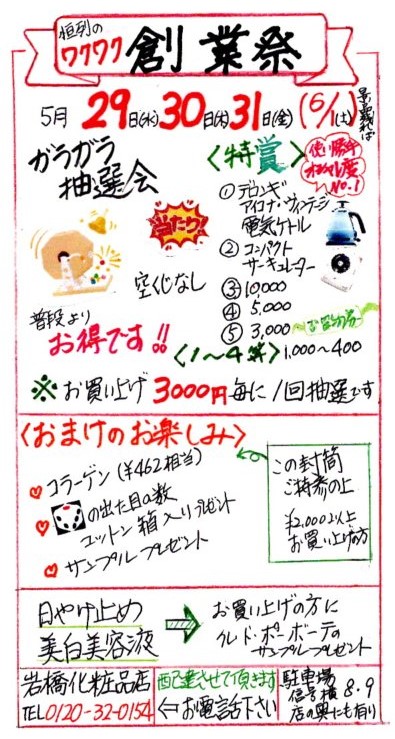 恒例の
ワクワク 創業祭
5月 29日(水) 30日(木) 31日(金) (6/1(土)
景品残れば
ガラガラ
抽選会
当たり!
空くじなし
普段より
お得です!!
<特賞>
使い勝手
オシャレ度
No.1
① デロンギ
アイコナ・ヴィンテージ
電気ケトル
② コンパクト
サーキュレーター
③ 10,000
④ 5,000
⑤ 3,000
お買物券
<1~4等> 1,000~400
※ お買い上げ 3000円毎に1回抽選です
<おまけのお楽しみ>
コラーゲン (¥462相当)
の出た目の数
コットン箱入りプレゼント
サンプルプレゼント
この封筒
ご持参の上
¥2,000以上
お買い上げの方
日やけ止め
美白美容液
お買い上げの方に
クルド・ポーボーテの
サンプルプレゼント
岩橋化粧品店
TEL 0120-32-0154
配達させて頂きます
⇦お電話下さい
駐車場
信号横 8.9
店の奥にも有り